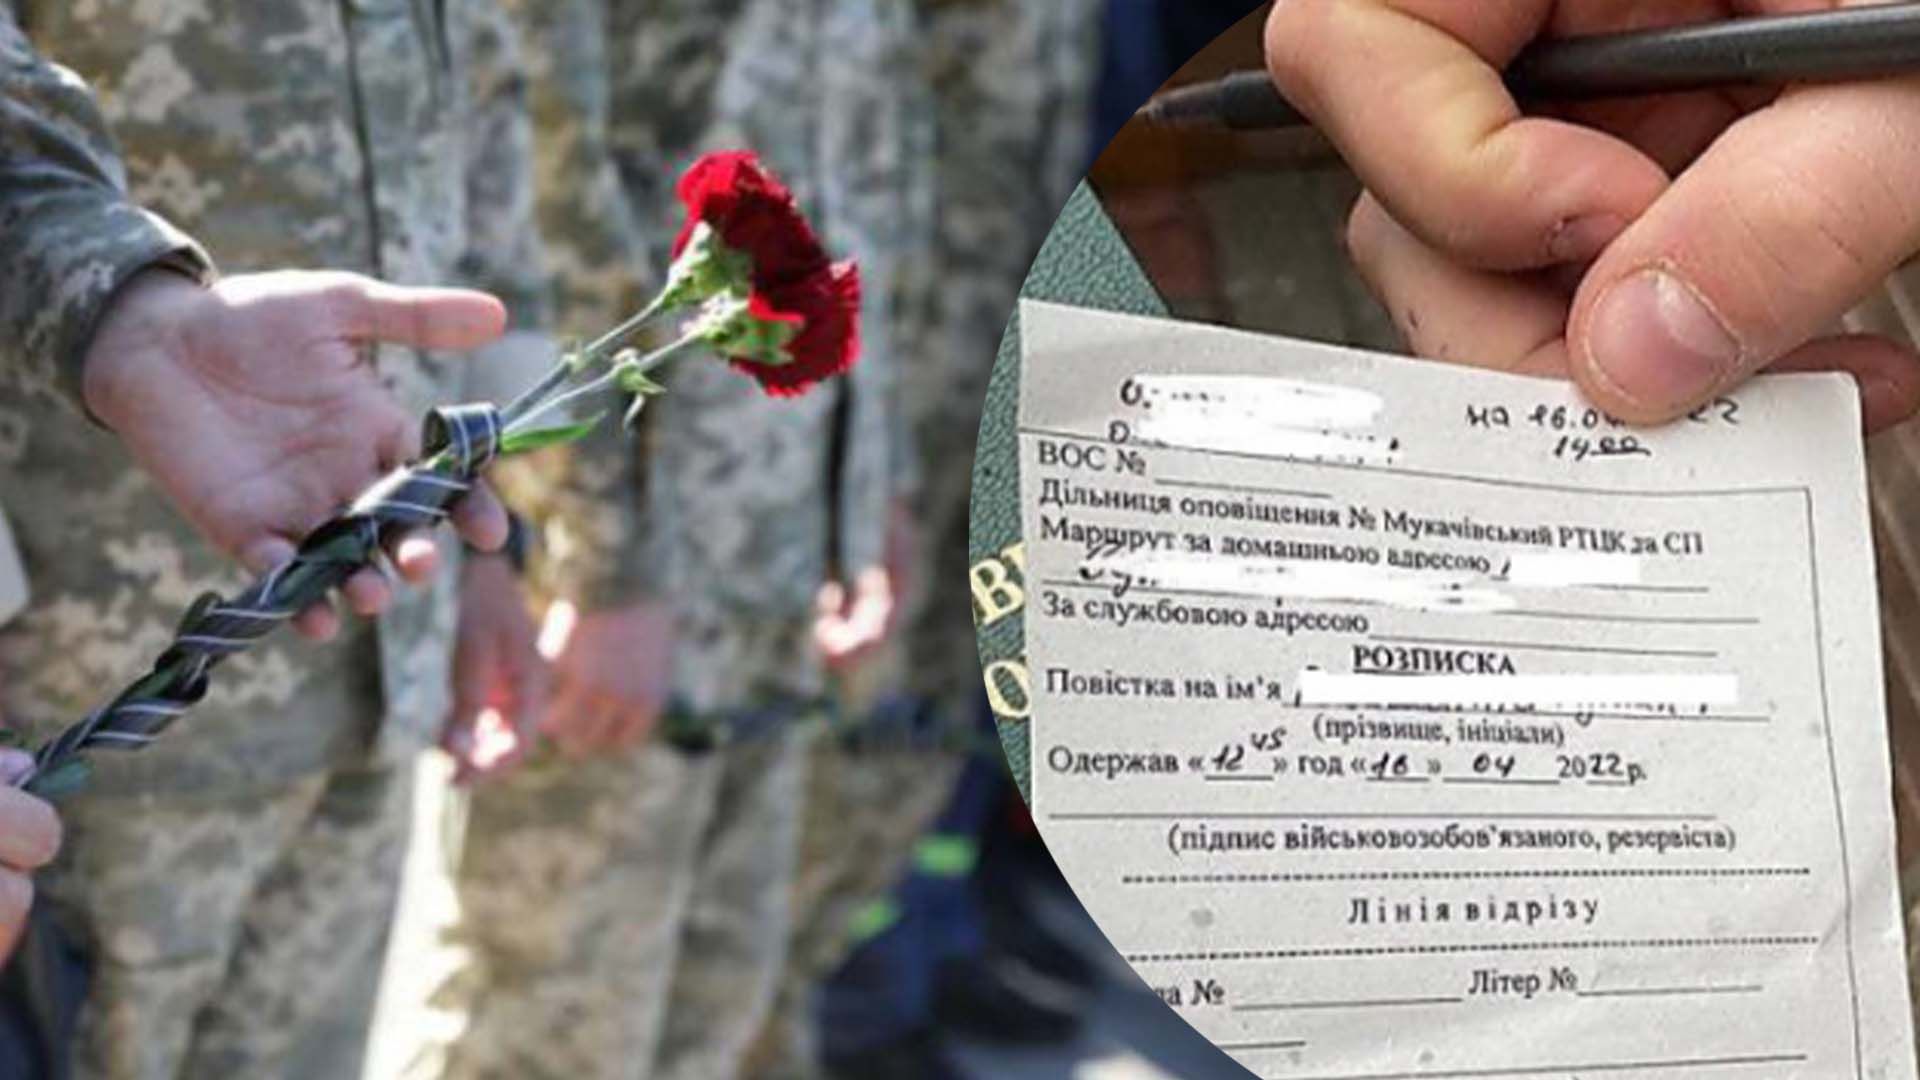 на 16.04 22
14 00
ВОС №
Дільниця оповіщення № Мукачівський РТЦК да СП
Маршрут за домашньою адресою
За службовою адресою
РОЗПИСКА
Повістка на ім'я
(прізвище, ініціали)
Одержав «12 45» год «16» 04 2022 р.
(підпис військовозобов'язаного, резервіста)
Лінія відрізу
№ Літер №